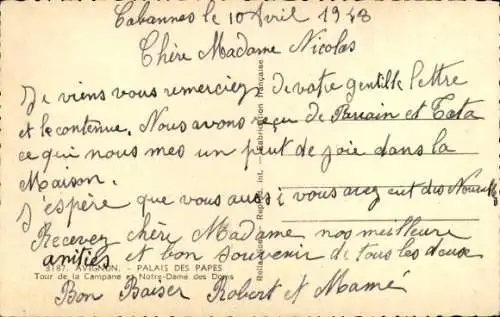 Cabannes le 10 Avril 1948
Chère Madame Nicolas
Je viens vous remerciez de votre gentille lettre
et le contenue. Nous avons reçu de Parrain et Tata
ce qui nous mes un peut de joie dans la
Maison.
J'espère que vous aussi vous avez eut des Nouvelles
Recevez chère Madame nos meilleure
amitiés et bon souvenir de tous les deux
3187. AVIGNON. - PALAIS DES PAPES
Tour de la Campane et Notre-Dame des Doms
Bon Baiser Robert et Mamé
Reprod. int. — Fabrication Française